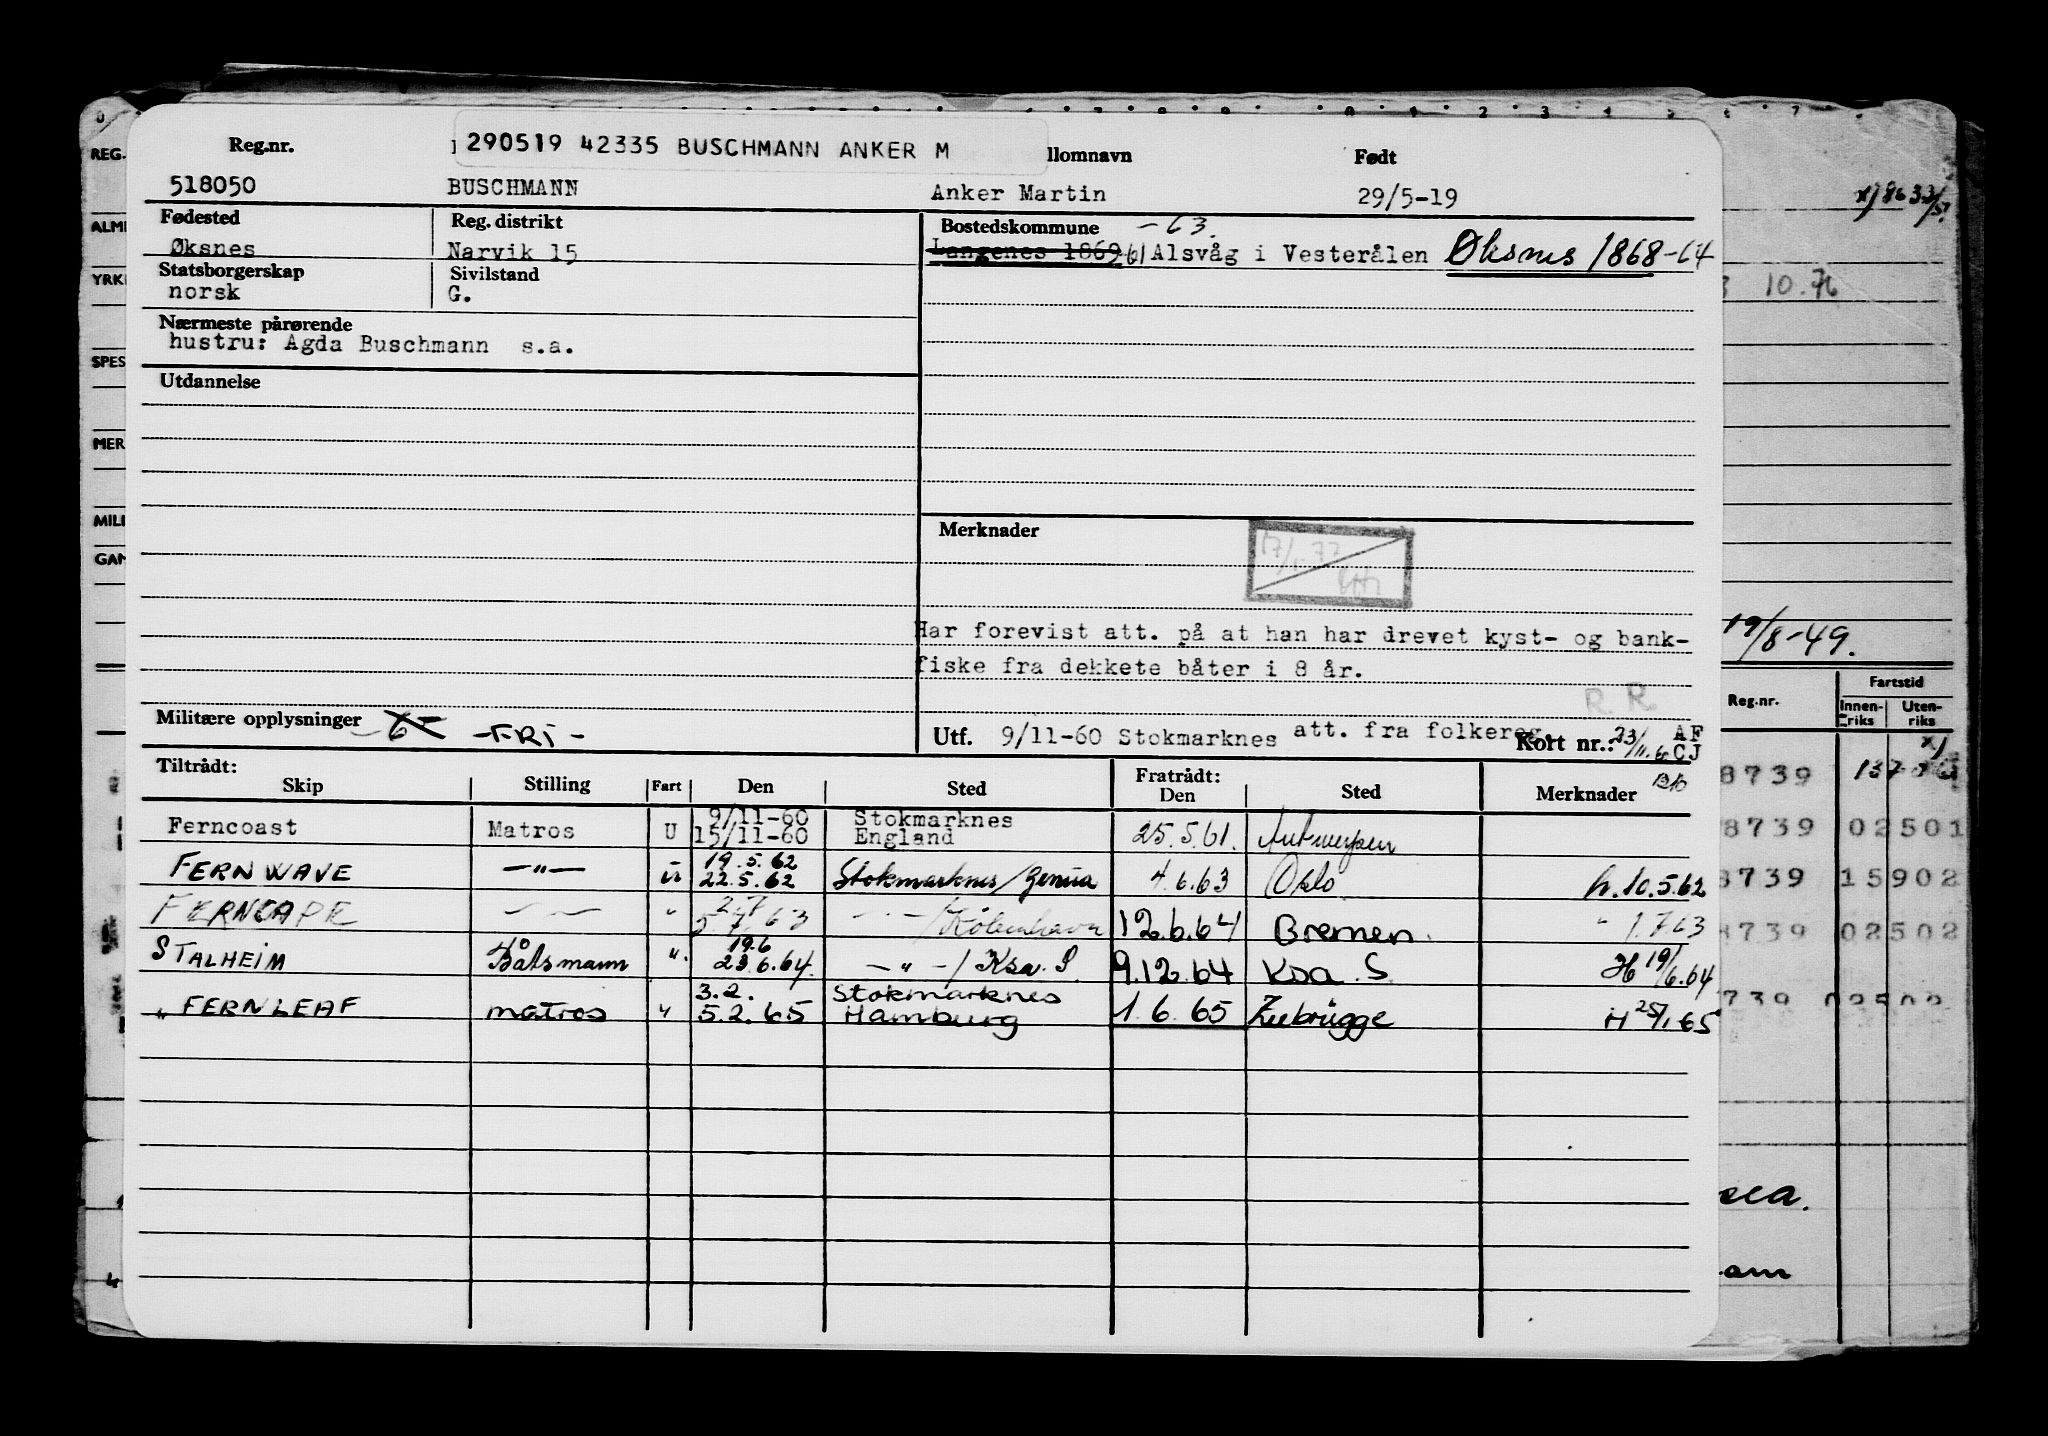 290519 42335 BUSCHMANN ANKER M
Reg.nr. llomnavn Født
518050 BUSCHMANN Anker Martin 29/5-19
Fødested Reg. distrikt Bostedskommune -63.
Øksnes Narvik 15 Langenes 1869 61 Alsvåg i Vesterålen Øksnes 1868-64
Statsborgerskap Sivilstand
norsk G.
Nærmeste pårørende
hustru: Agda Buschmann s.a.
Utdannelse
Merknader
17/1.77
Har forevist att. på at han har drevet kyst- og bank-
fiske fra dekkete båter i 8 år.
R.R.
Militære opplysninger -FRI-
Utf. 9/11-60 Stokmarknes att. fra folkereg. Kort nr.: 23/11.60 AF CJ
Tiltrådt: Fratrådt:
Skip Stilling Fart Den Sted Den Sted Merknader
Ferncoast Matros U 9/11-60 15/11-60 Stokmarknes England 25.5.61. Antwerpen
FERNWAVE —"— u 19.5.62 22.5.62 Stokmarknes/Genua 4.6.63 Oslo h.10.5.62
FERNCAPE " 2.7 5.7.63 —"—/København 12.6.64 Bremen " 1.7.63
STALHEIM Båtsmann " 19.6 23.6.64. —"—/Ksa. S 9.12.64 Ksa. S. H 19/6.64
" FERNLEAF matros " 3.2. 5.2.65 Stokmarknes Hamburg 1.6.65 Zeebrügge H 25/1.65
REG.
ALM
YRK
SPES
MER
MILI
GAN
x) 8633/51.
10.76
19/8-49.
Reg.nr. Fartstid
Innen-riks Uten-riks
8739
8739 02501
8739 15902
8739 02502
739 02502